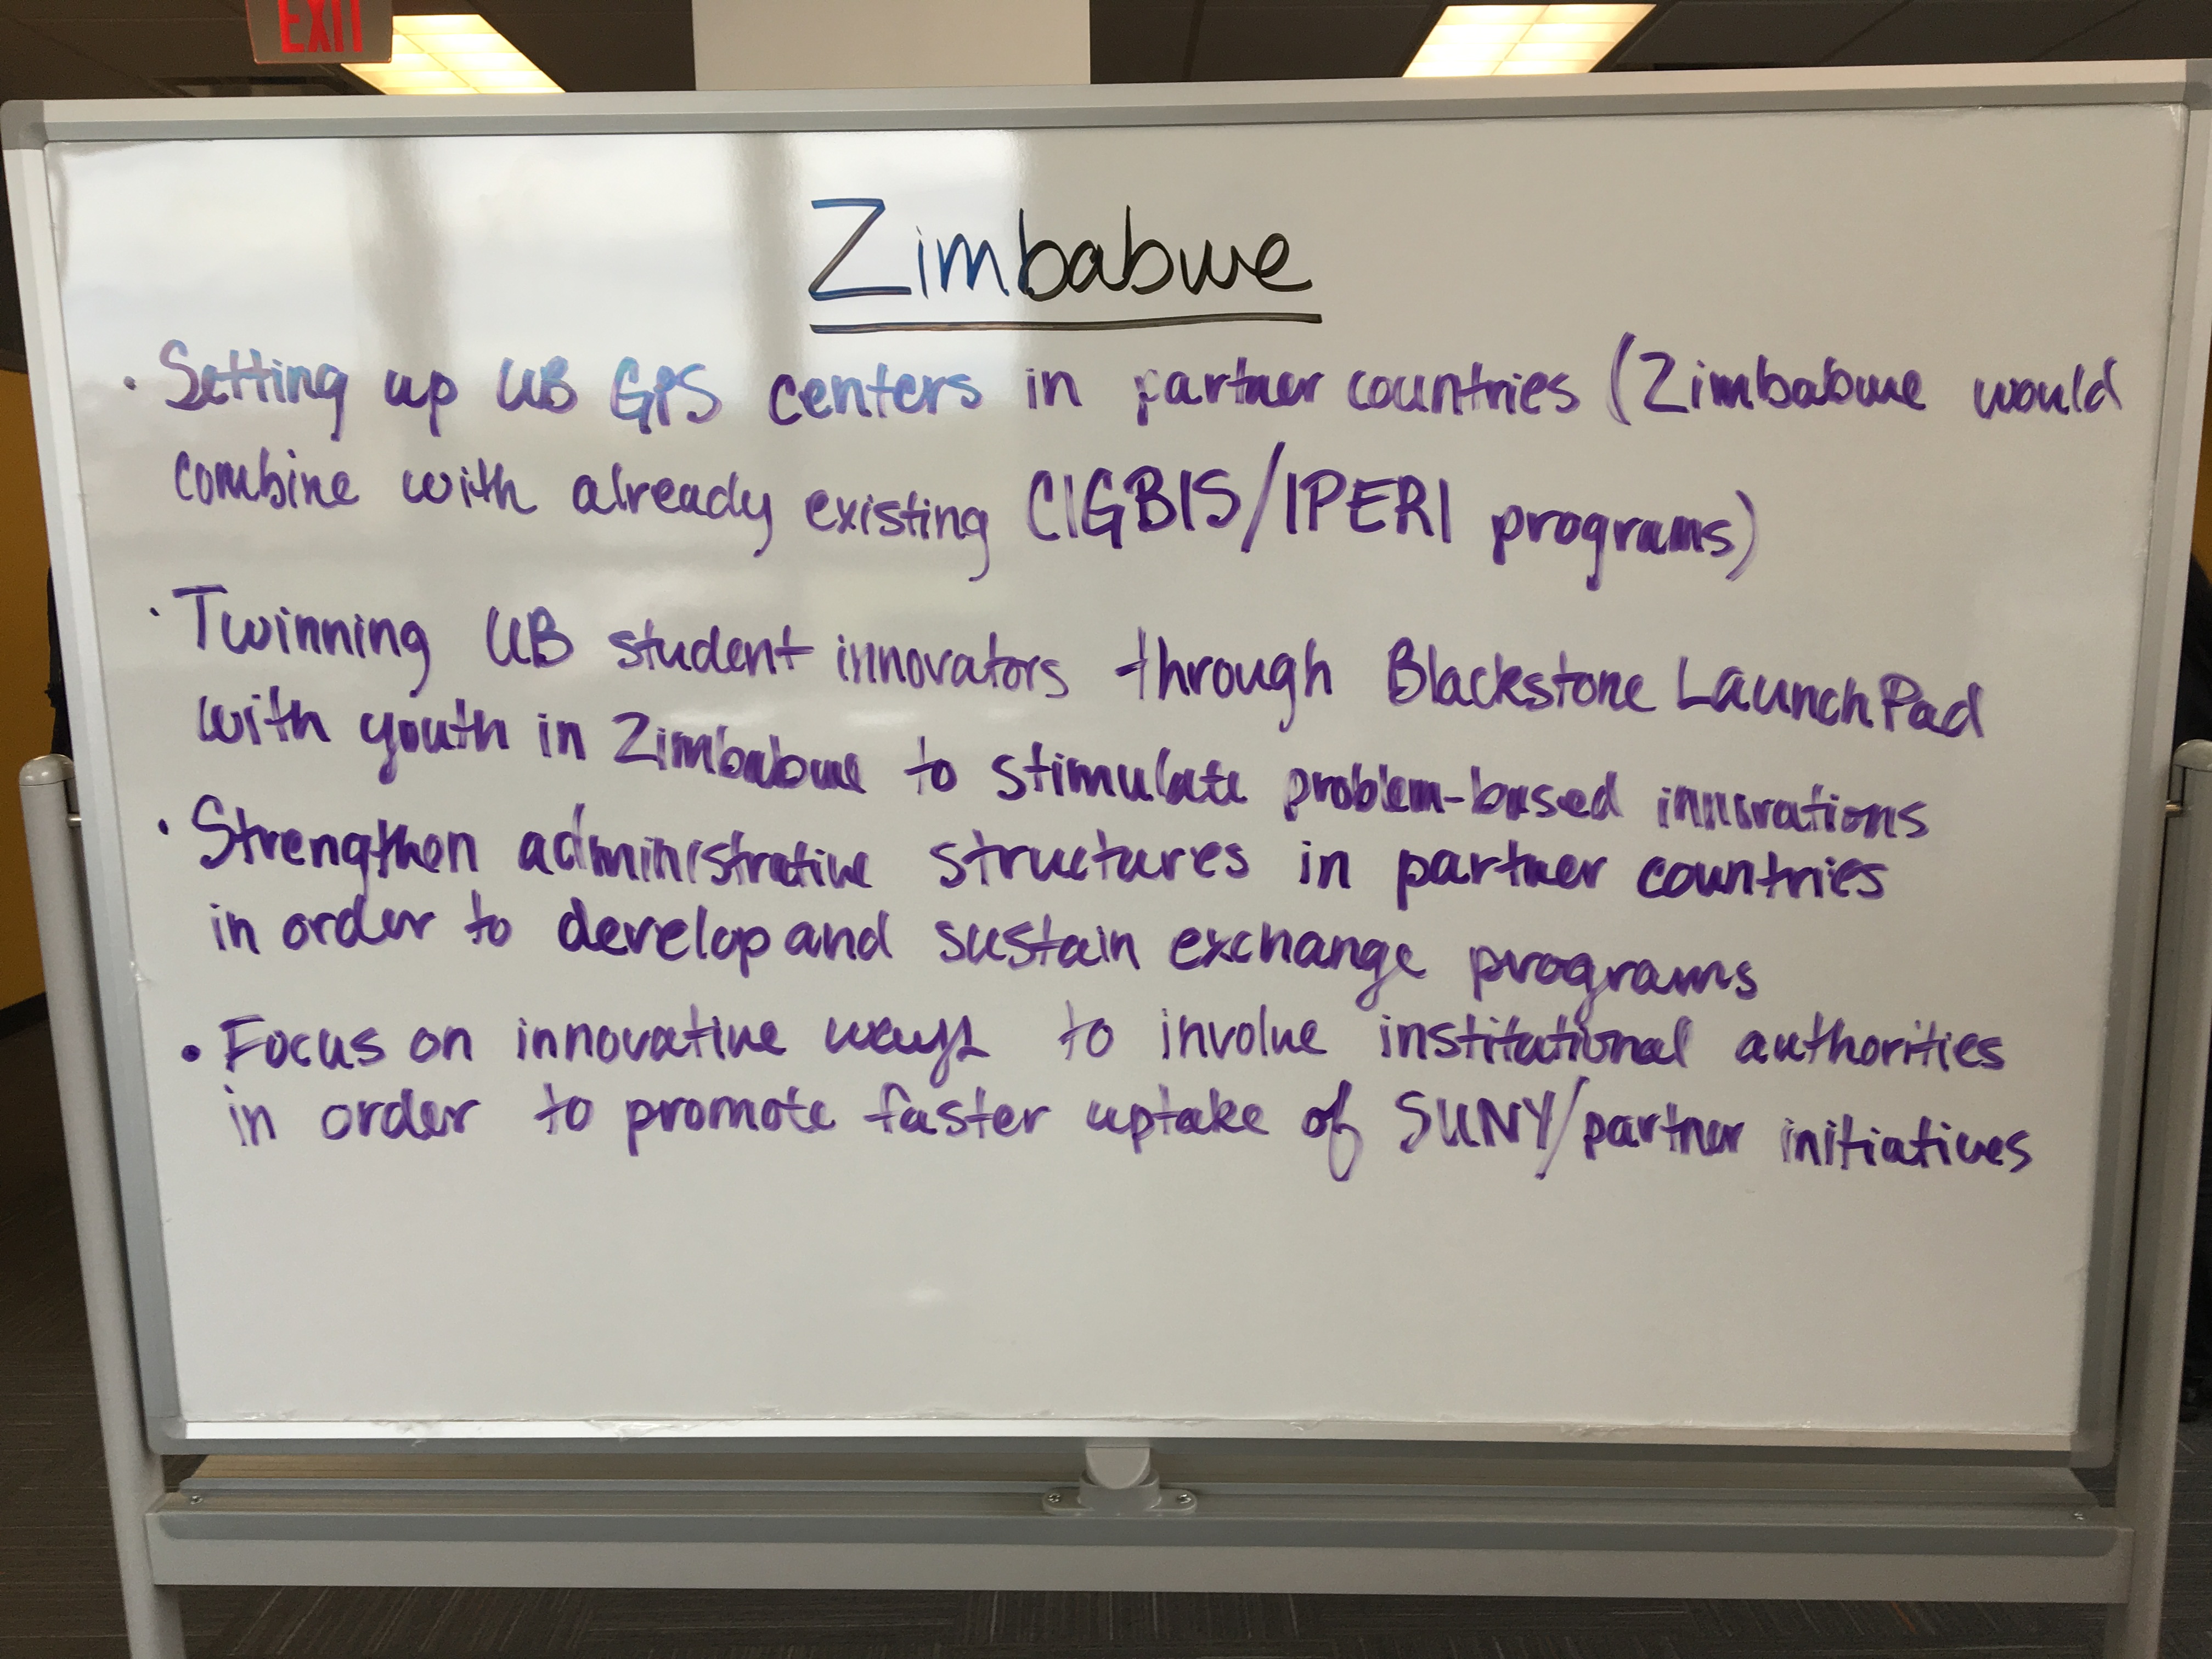 EXIT
Zimbabwe
• Setting up UB GPS centers in partner countries (Zimbabwe would
combine with already existing CIGBIS/IPERI programs)
• Twinning UB student innovators through Blackstone LaunchPad
with youth in Zimbabwe to stimulate problem-based innovations
• Strengthen administrative structures in partner countries
in order to develop and sustain exchange programs
• Focus on innovative ways to involve institutional authorities
in order to promote faster uptake of SUNY/partner initiatives